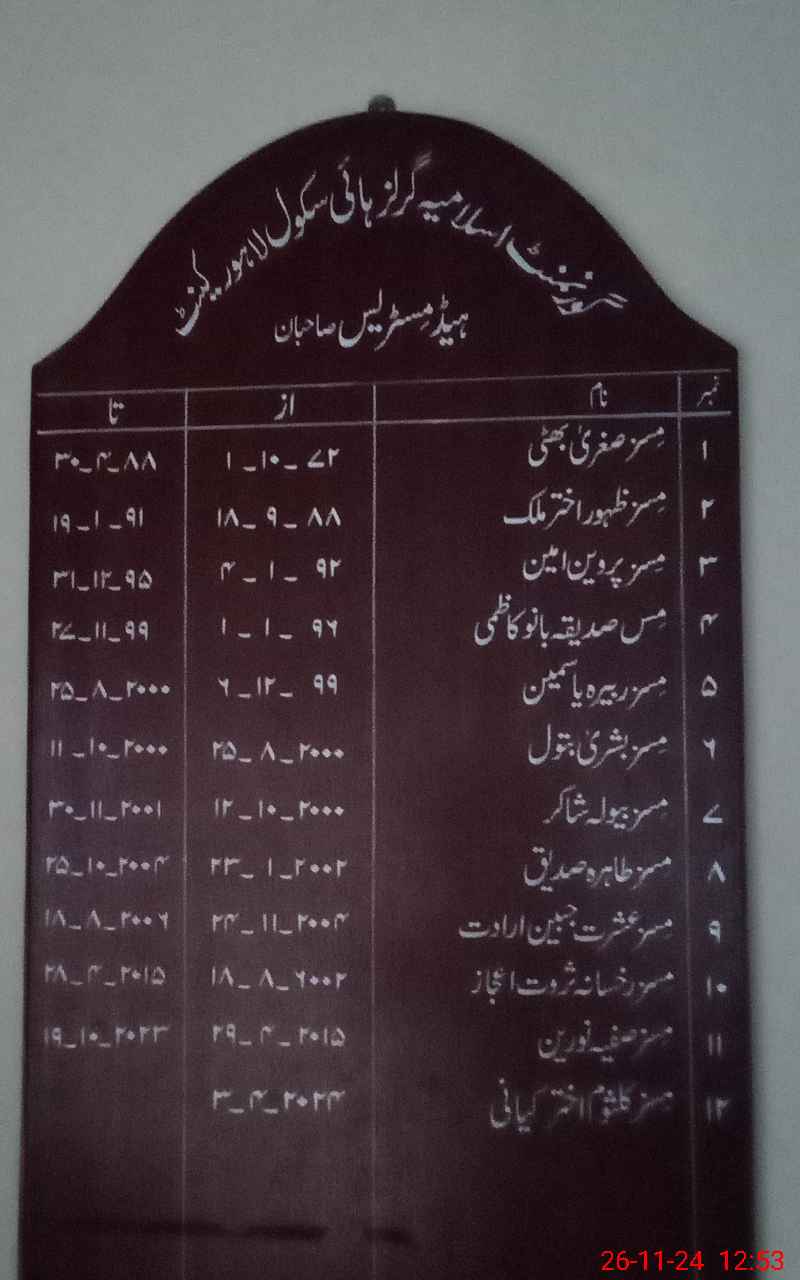 گورنمنٹ اسلامیہ گرلز ہائی سکول لاہور کینٹ
ہیڈ مسٹریس صاحبان
نمبر نام از تا
۱ مسز صغریٰ بھٹی ۱_۱۰_۷۲ ۳۰_۴_۸۸
۲ مسز ظہور اختر ملک ۱۸_۹_۸۸ ۱۹_۱_۹۱
۳ مسز پروین امین ۴_۱_۹۲ ۳۱_۱۲_۹۵
۴ مس صدیقہ بانو کاظمی ۱_۱_۹۶ ۲۷_۱۱_۹۹
۵ مسز ربیرہ یاسمین ۶_۱۲_۹۹ ۲۵_۸_۲۰۰۰
۶ مسز بشریٰ بتول ۲۵_۸_۲۰۰۰ ۱۱_۱۰_۲۰۰۰
۷ مسز بیولہ شاکر ۱۲_۱۰_۲۰۰۰ ۳۰_۱۱_۲۰۰۱
۸ مسز طاہرہ صدیق ۲۳_۱_۲۰۰۲ ۲۵_۱۰_۲۰۰۴
۹ مسز عشرت جبین ارادت ۲۴_۱۱_۲۰۰۴ ۱۸_۸_۲۰۰۶
۱۰ مسز رخسانہ ثروت اعجاز ۱۸_۸_۶۰۰۲ ۲۸_۴_۲۰۱۵
۱۱ مسز صفیہ نورین ۲۹_۴_۲۰۱۵ ۱۹_۱۰_۲۰۲۳
۱۲ مسز کلثوم اختر کیانی ۳_۴_۲۰۲۴
26-11-24 12:53